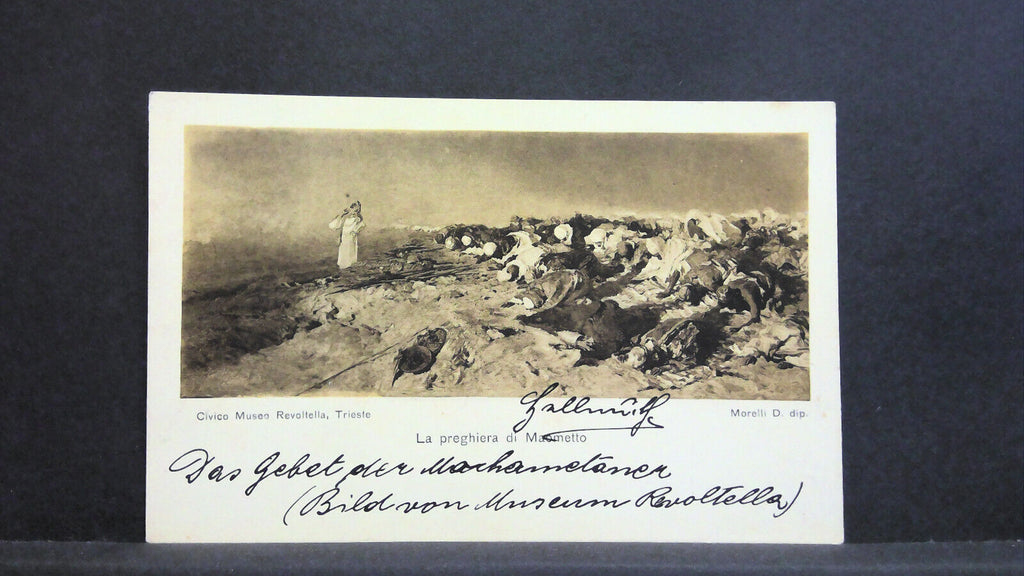 Civico Museo Revoltella, Trieste
Morelli D. dip.
Hellmuth
La preghiera di Maometto
Das Gebet der Machametaner
(Bild von Museum Revoltella)